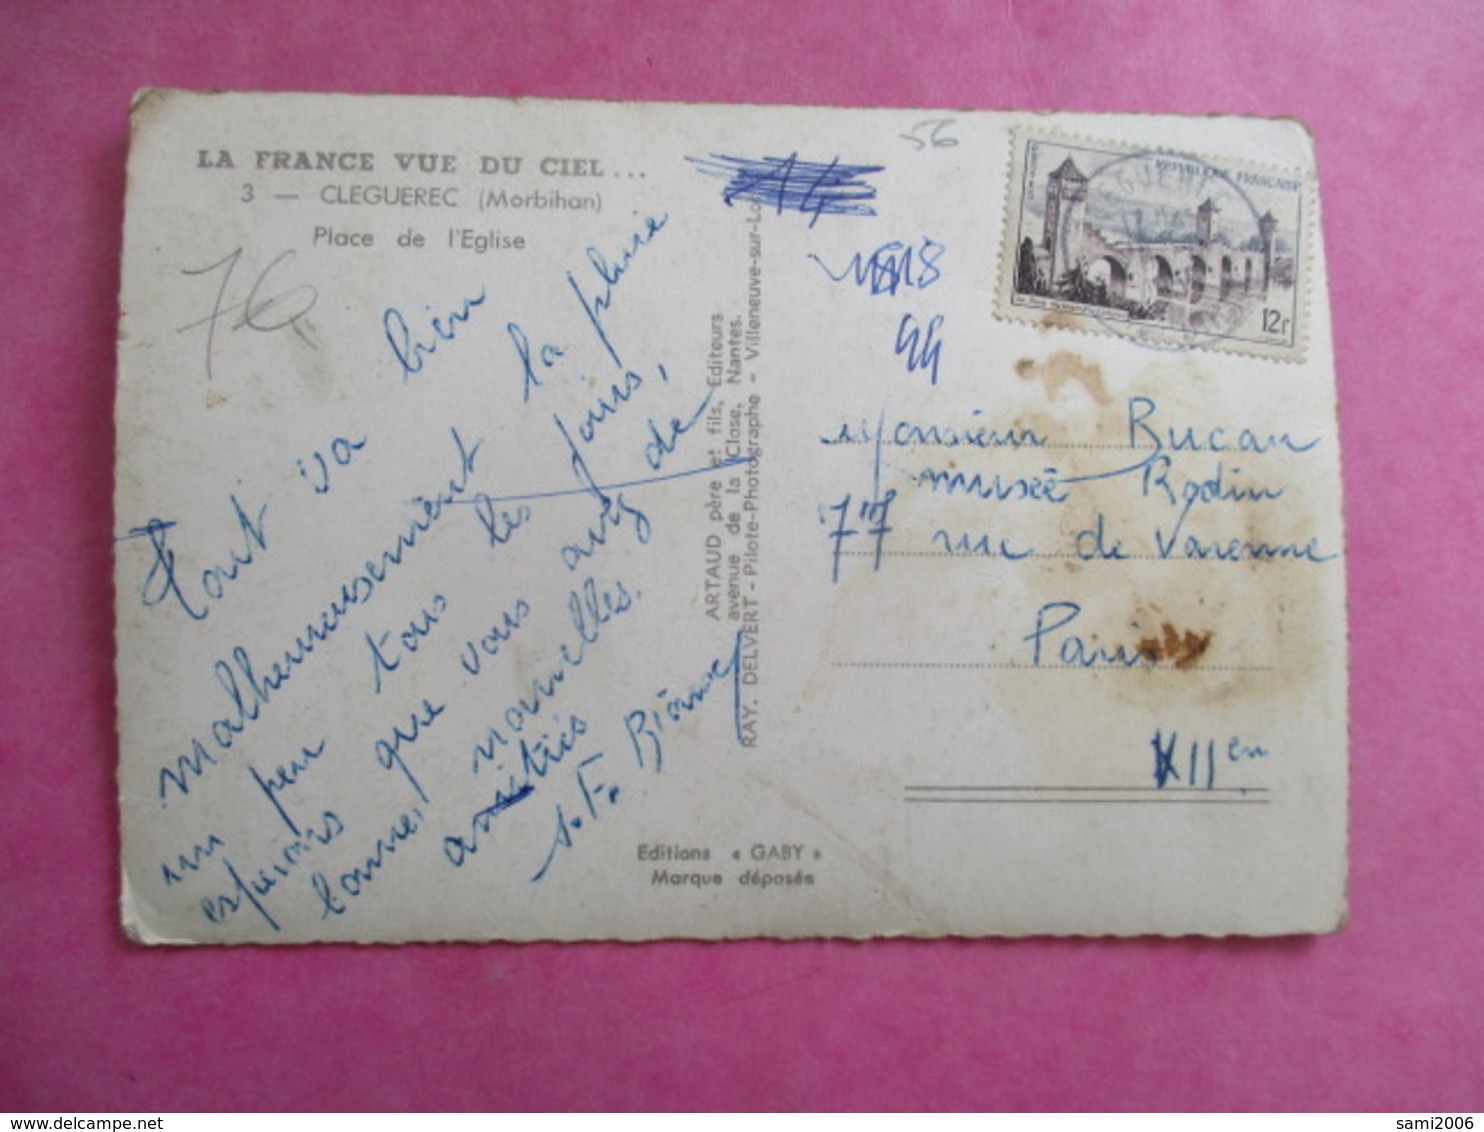 LA FRANCE VUE DU CIEL ...
3 — CLEGUEREC (Morbihan)
Place de l'Eglise
76
56
14
44
Tout va bien
malheureusement la pluie
un peu tous les jours,
espérons que vous avez de
bonnes nouvelles.
amitiés
ARTAUD père et fils, Editeurs
avenue de la Close, Nantes.
RAY. DELVERT - Pilote-Photographe - Villeneuve-sur-Lo
REPUBLIQUE FRANÇAISE
12f
Monsieur Bucan
musée Rodin
77 rue de Varenne
Paris
XII en
Editions « GABY »
Marque déposée
sami2006
delcampe.net